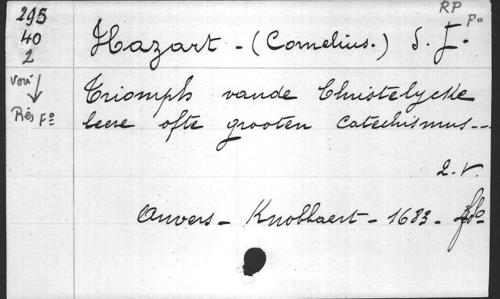 RP
Fo
295
40
2
voir
Rés Fo
Hazart - (Cornelius.) S. J.
Triomph vande Christelycke
leere ofte grooten catechismus --
2. v.
Anvers - Knobbaert - 1683 - fol